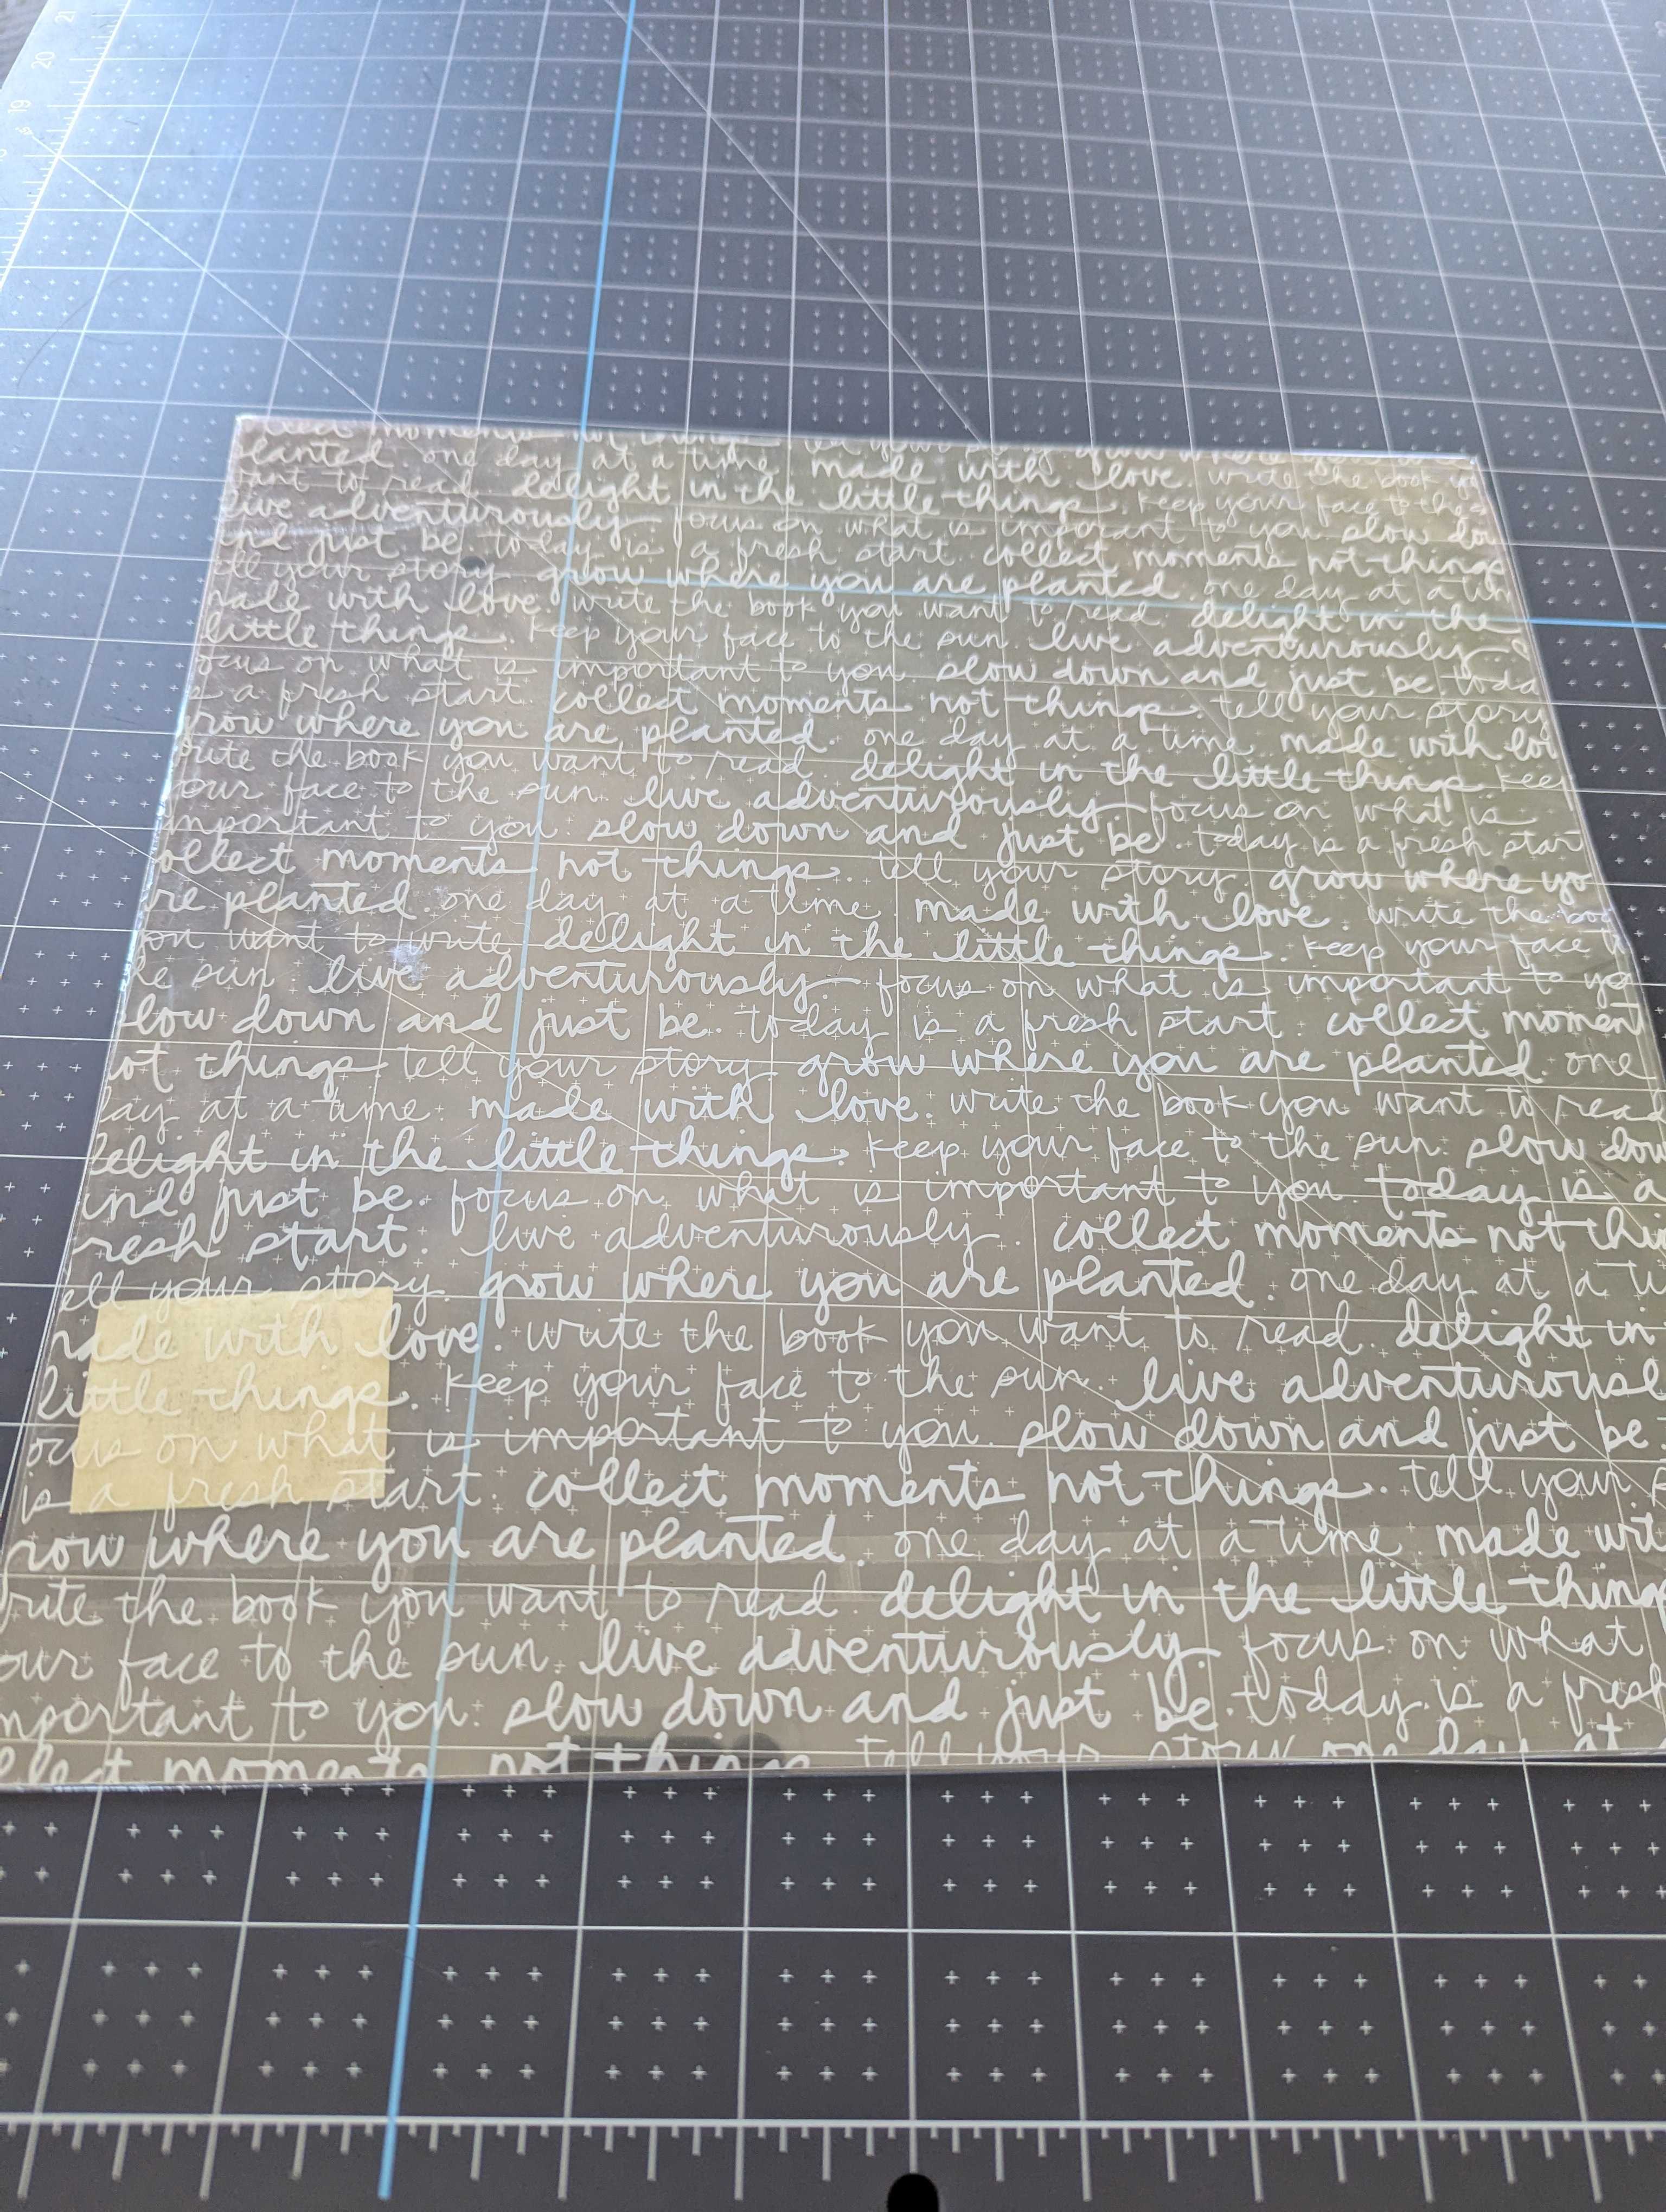 21
20
19
moments not things
lanted. one day at a time. made with love. write the book yo
ant to read. delight in the little things. keep your face to the s
live adventurously. focus on what is important to you. slow dow
and just be. today is a fresh start. collect moments not things
tell your story. grow where you are planted. one day at a tim
made with love. write the book you want to read. delight in the
little things. keep your face to the sun. live adventurously.
ocus on what is important to you. slow down and just be. toda
is a fresh start. collect moments not things. tell your story
row where you are planted. one day at a time. made with lov
rite the book you want to read. delight in the little things. keep
your face to the sun. live adventurously. focus on what is
mportant to you. slow down and just be. today is a fresh start
ollect moments not things. tell your story. grow where yo
re planted. one day at a time. made with love. write the boo
you want to write. delight in the little things. keep your face t
he sun. live adventurously. focus on what is important to yo
slow down and just be. today is a fresh start. collect moment
ot things. tell your story. grow where you are planted. one
day at a time. made with love. write the book you want to read
delight in the little things. keep your face to the sun. slow dow
and just be. focus on what is important to you. today is a
resh start. live adventurously. collect moments not thin
ell your story. grow where you are planted. one day at a ti
made with love. write the book you want to read. delight in
little things. keep your face to the sun. live adventurousl
ocus on what is important to you. slow down and just be.
is a fresh start. collect moments not things. tell your s
row where you are planted. one day at a time. made wit
rite the book you want to read. delight in the little thing
our face to the sun. live adventurously. focus on what
mportant to you. slow down and just be. today is a fresh
llect moments not things. tell your story one day at